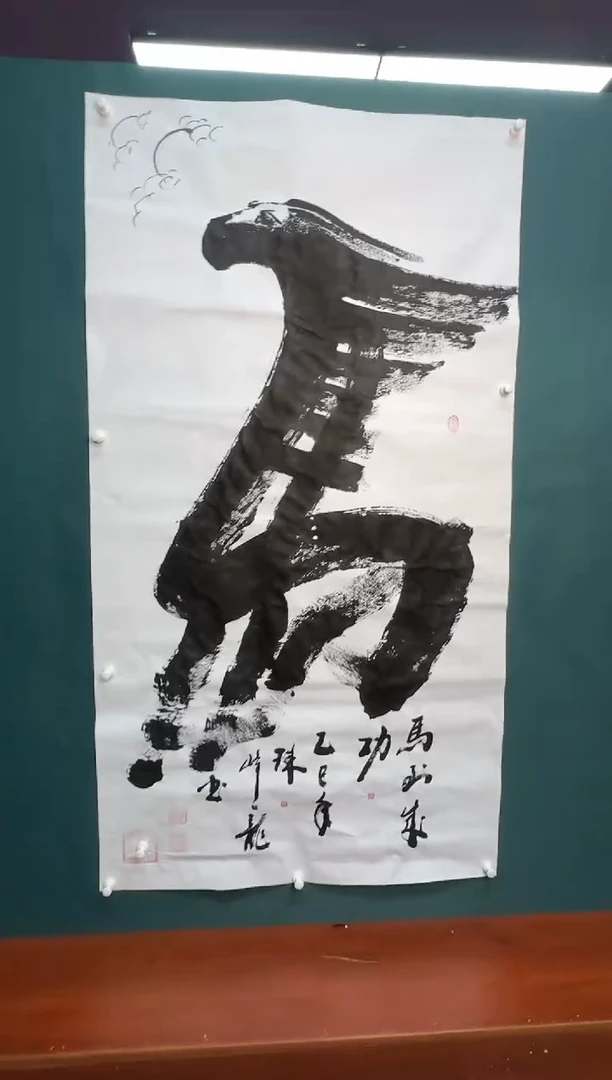 馬
馬到成
功
乙巳年
珠
峰龍
书